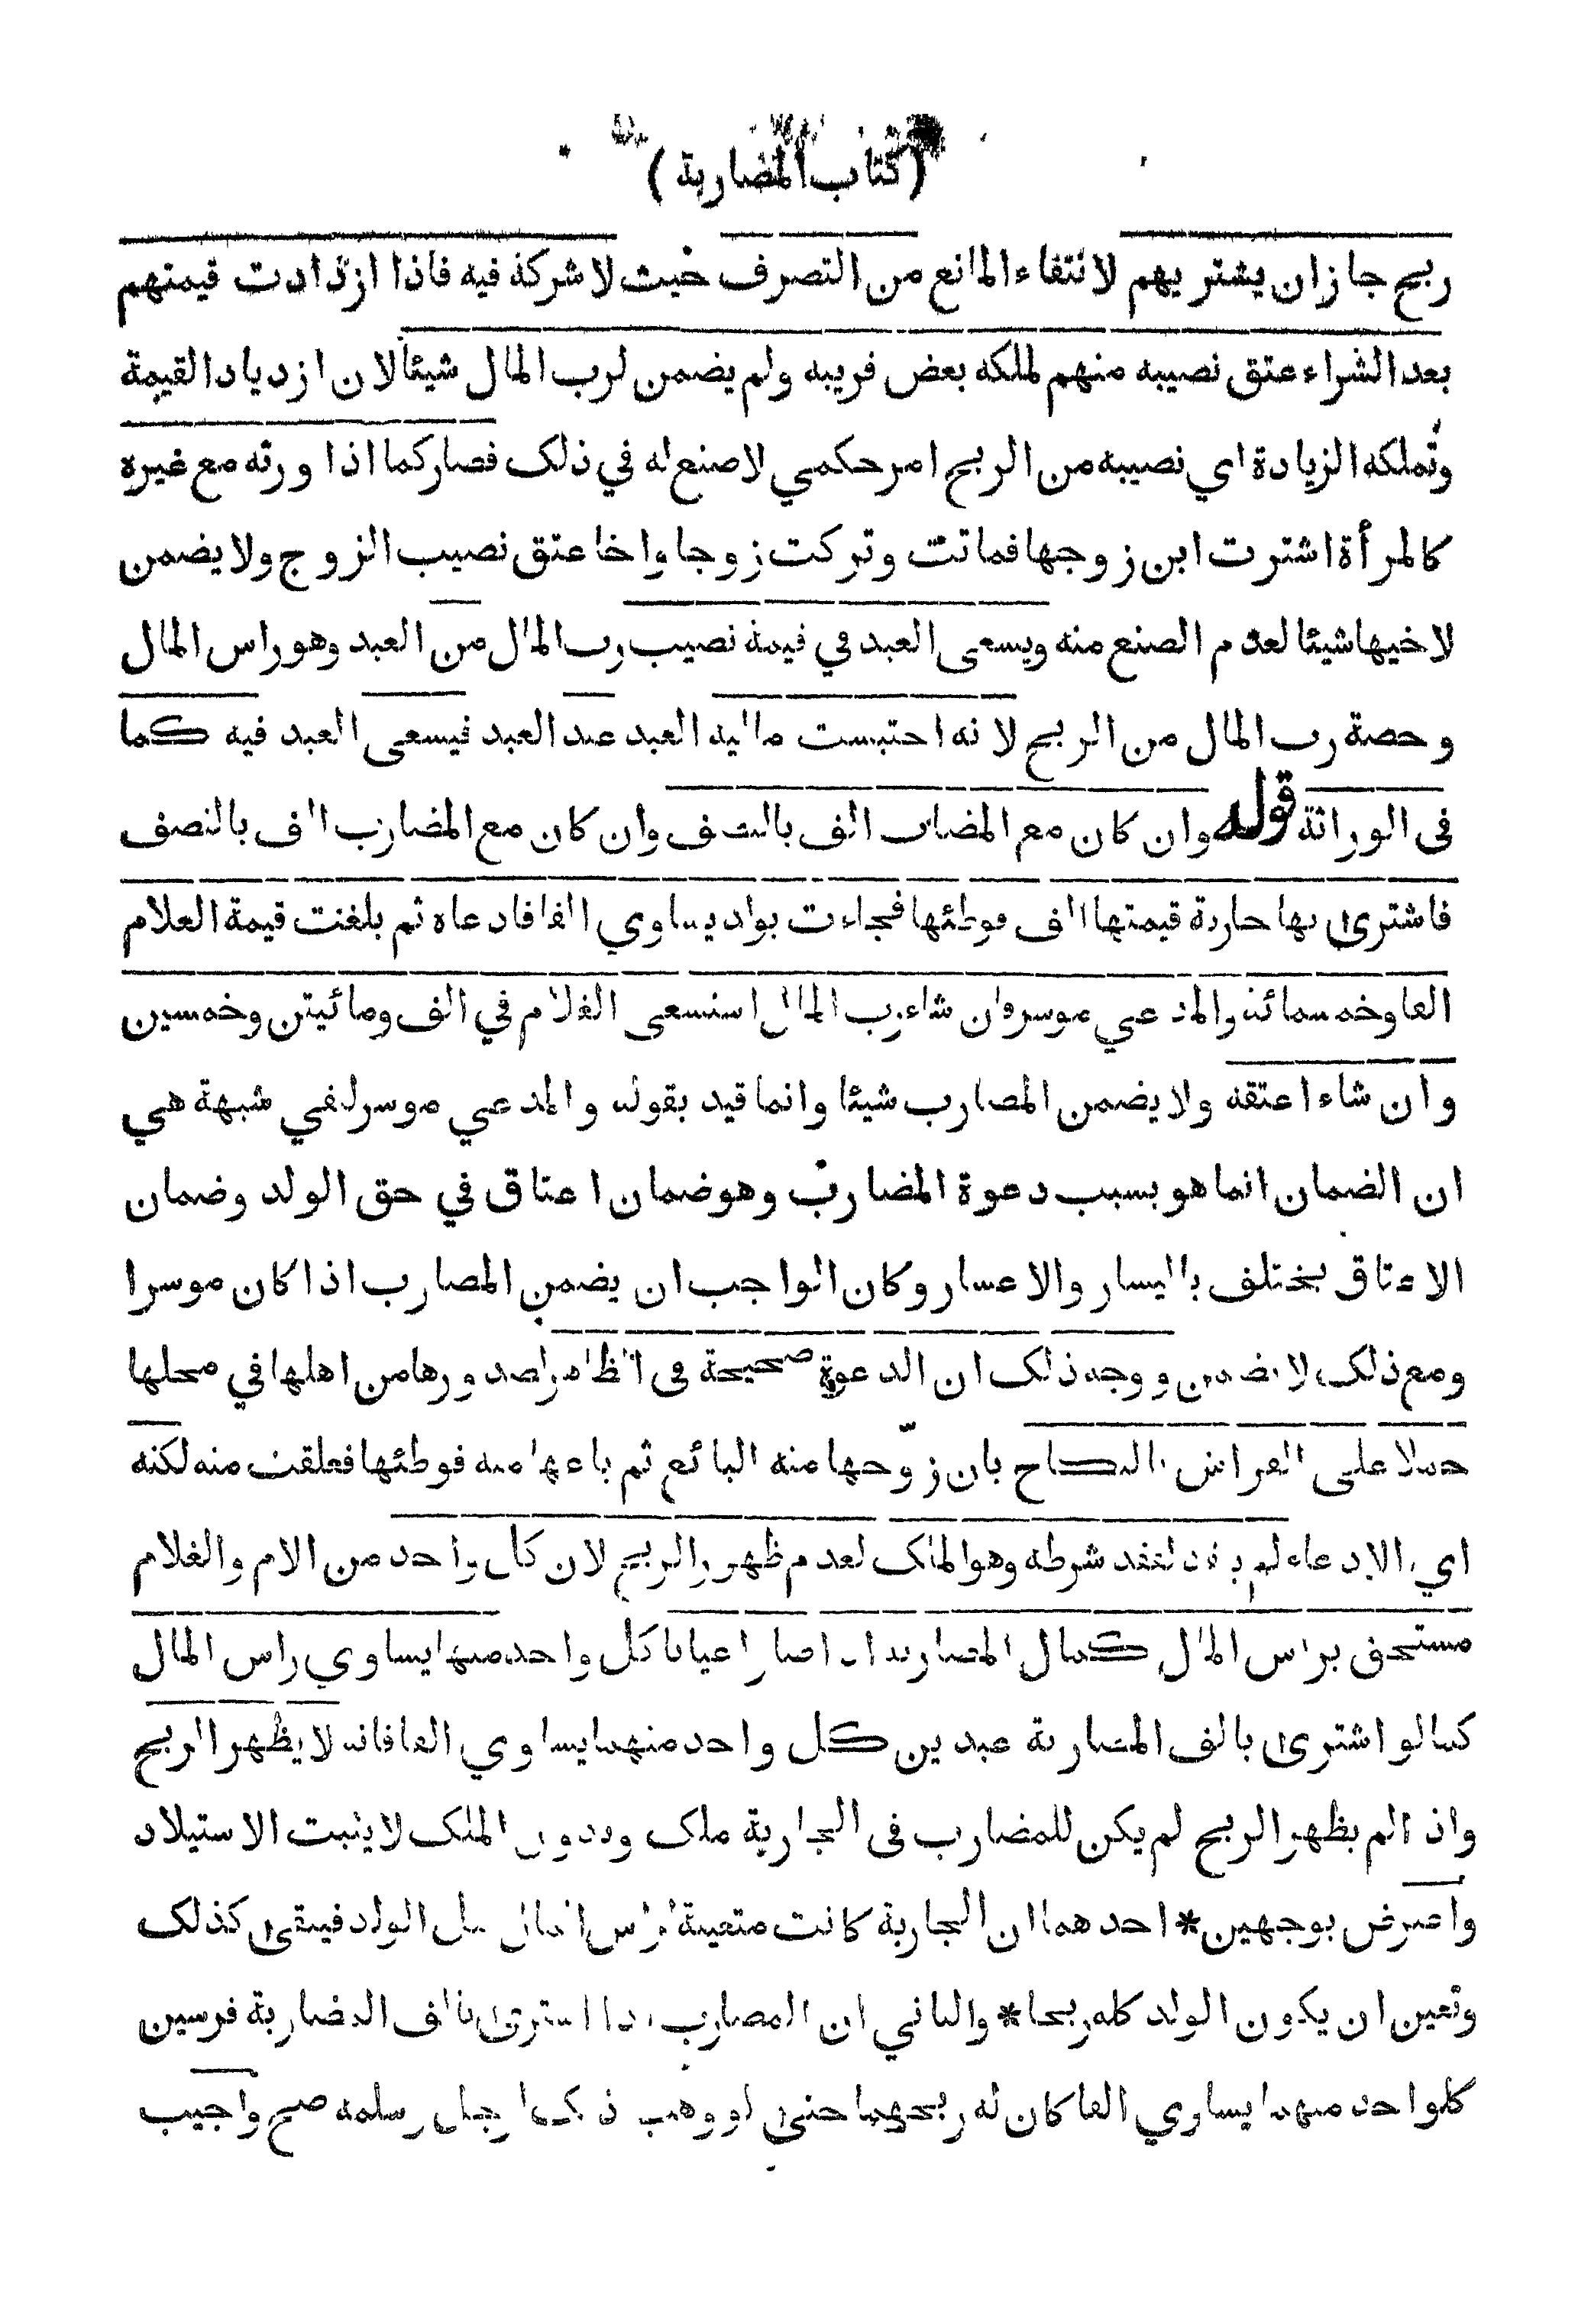 (كتاب المضاربة)
ربح جاز ان يشتريهم لانتفاء المانع من التصرف حيث لا شركة فيه فاذا ازدادت قيمتهم
بعد الشراء عتق نصيبه منهم لملكه بعض قريبه ولم يضمن لرب المال شيئا لان ازدياد القيمة
وتملكه الزيادة اي نصيبه من الربح امر حكمي لا صنع له في ذلك فصار كما اذا ورثه مع غيره
كالمرأة اشترت ابن زوجها فماتت وتركت زوجا واخا عتق نصيب الزوج ولا يضمن
لاخيها شيئا لعدم الصنع منه ويسعى العبد في قيمة نصيب رب المال من العبد وهو راس المال
وحصة رب المال من الربح لانه احتبست مالية العبد عند العبد فيسعى العبد فيه كما
في الوراثة قوله وان كان مع المضارب الف بالنصف وان كان مع المضارب الف بالنصف
فاشترى بها جارية قيمتها الف فوطئها فجاءت بولد يساوي الفا فادعاه ثم بلغت قيمة الغلام
الفا وخمسمائة والمدعي موسر فان شاء رب المال استسعى الغلام في الف ومائيتن وخمسين
وان شاء اعتقه ولا يضمن المضارب شيئا وانما قيد بقوله والمدعي موسر لنفي شبهة هي
ان الضمان انما هو بسبب دعوة المضارب وهو ضمان اعتاق في حق الولد وضمان
الاعتاق يختلف باليسار والاعسار وكان الواجب ان يضمن المضارب اذا كان موسرا
ومع ذلك لا يضمن ووجه ذلك ان الدعوة صحيحة في الظاهر لصدورها من اهلها في محلها
حملا على الفراش بالنكاح بان زوّجها منه البائع ثم باعها منه فوطئها فعلقت منه لكنه
اي الادعاء لم ينفذ لفقد شرطه وهو الملك لعدم ظهور الربح لان كل واحد من الام والغلام
مستحق براس المال كمال المضاربة اذا صار اعيانا كل واحد منها يساوي راس المال
كما لو اشترى بالف المضاربة عبدين كل واحد منهما يساوي الفا فانه لا يظهر الربح
واذا لم يظهر الربح لم يكن للمضارب في الجارية ملك وبدون الملك لا يثبت الاستيلاد
واعترض بوجهين * احدهما ان الجارية كانت متعينة لراس المال قبل الولد فيبقى كذلك
وتعين ان يكون الولد كله ربحا * والثاني ان المضارب اذا اشترى بالف المضاربة فرسين
كل واحد منهما يساوي الفا كان له ربحهما حتى لو وهب ذلك لرجل وسلمه صح واجيب